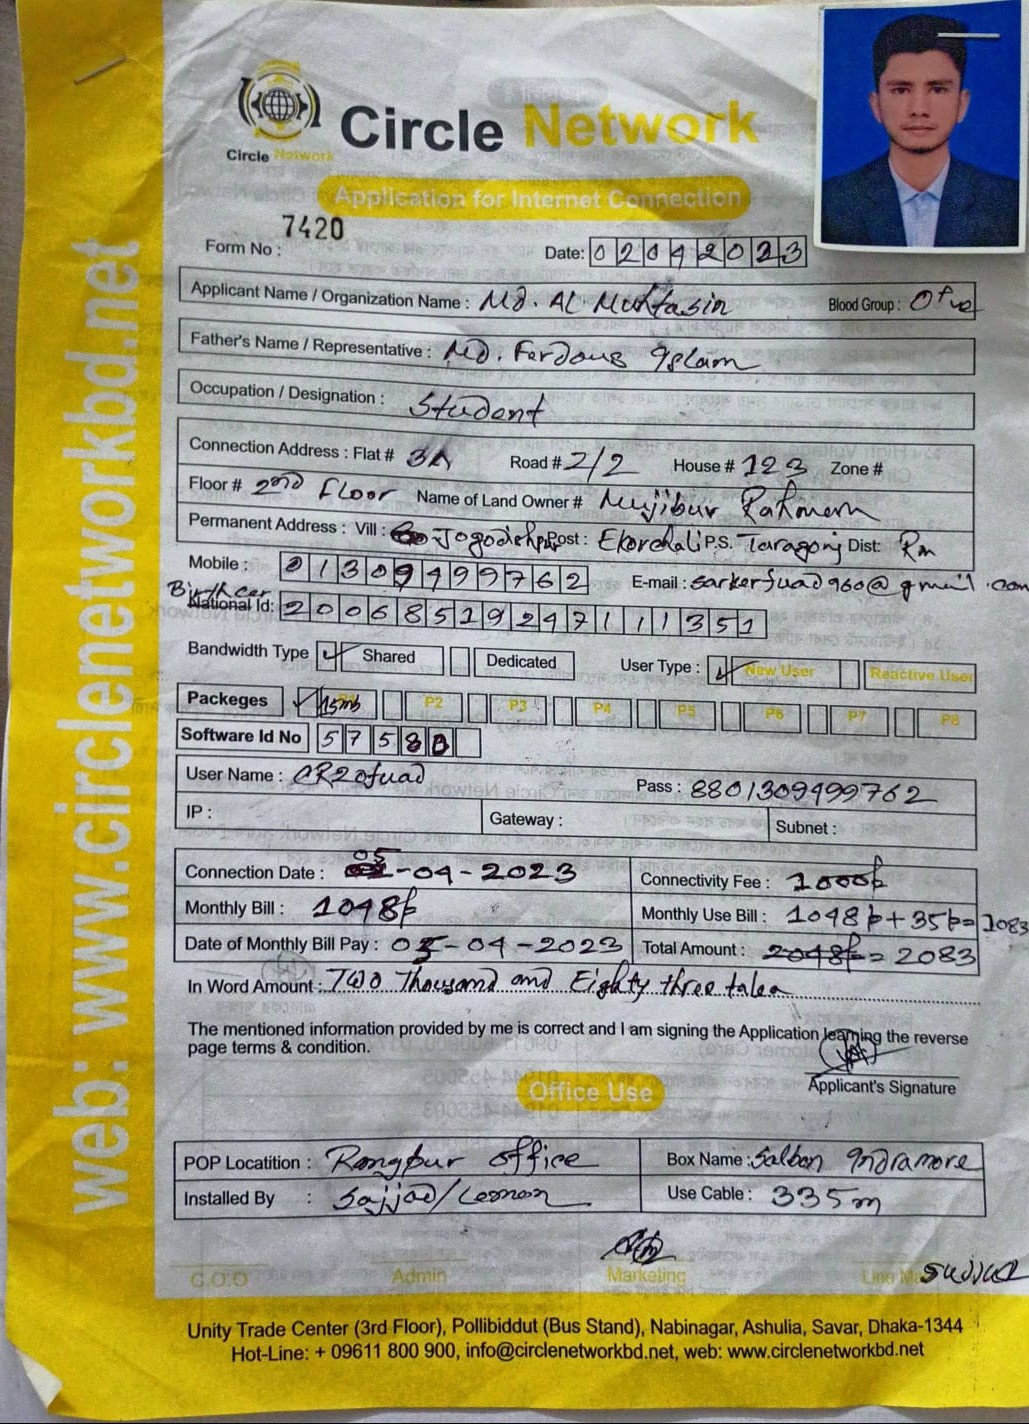 Circle Network
Circle Network
Application for Internet Connection
Form No : 7420
Date: 02042023
Applicant Name / Organization Name : Md. AL Muhtasin Blood Group : O+ve
Father's Name / Representative : Md. Ferdous Islam
Occupation / Designation : Student
Connection Address : Flat # 3A Road # 2/2 House # 123 Zone #
Floor # 2nd Floor Name of Land Owner # Mujibur Rahman
Permanent Address : Vill : Post : Ekorchali P.S. Taragonj Dist: Rn
Mobile : 01309499762 E-mail : sarkerfuad960@gmail.com
Birth cer
National Id: 20068519247111351
Bandwidth Type Shared Dedicated User Type : New User Reactive User
Packeges 15mb P2 P3 P4 P5 P6 P7 P8
Software Id No 5758
User Name : CR20fuad Pass : 8801309499762
IP : Gateway : Subnet :
Connection Date : 05-04-2023 Connectivity Fee : 1000৳
Monthly Bill : 1048৳ Monthly Use Bill : 1048৳+35৳=2083
Date of Monthly Bill Pay : 05-04-2023 Total Amount : 2048৳= 2083
In Word Amount : Two Thousand and Eighty three taka
The mentioned information provided by me is correct and I am signing the Application learning the reverse
page terms & condition.
Applicant's Signature
Office Use
POP Locatition : Rangpur office Box Name : Salban Indramore
Installed By : Sajjad/Lemon Use Cable : 335m
C.O.O Admin Marketing
Unity Trade Center (3rd Floor), Pollibiddut (Bus Stand), Nabinagar, Ashulia, Savar, Dhaka-1344
Hot-Line: + 09611 800 900, info@circlenetworkbd.net, web: www.circlenetworkbd.net
web: www.circlenetworkbd.net